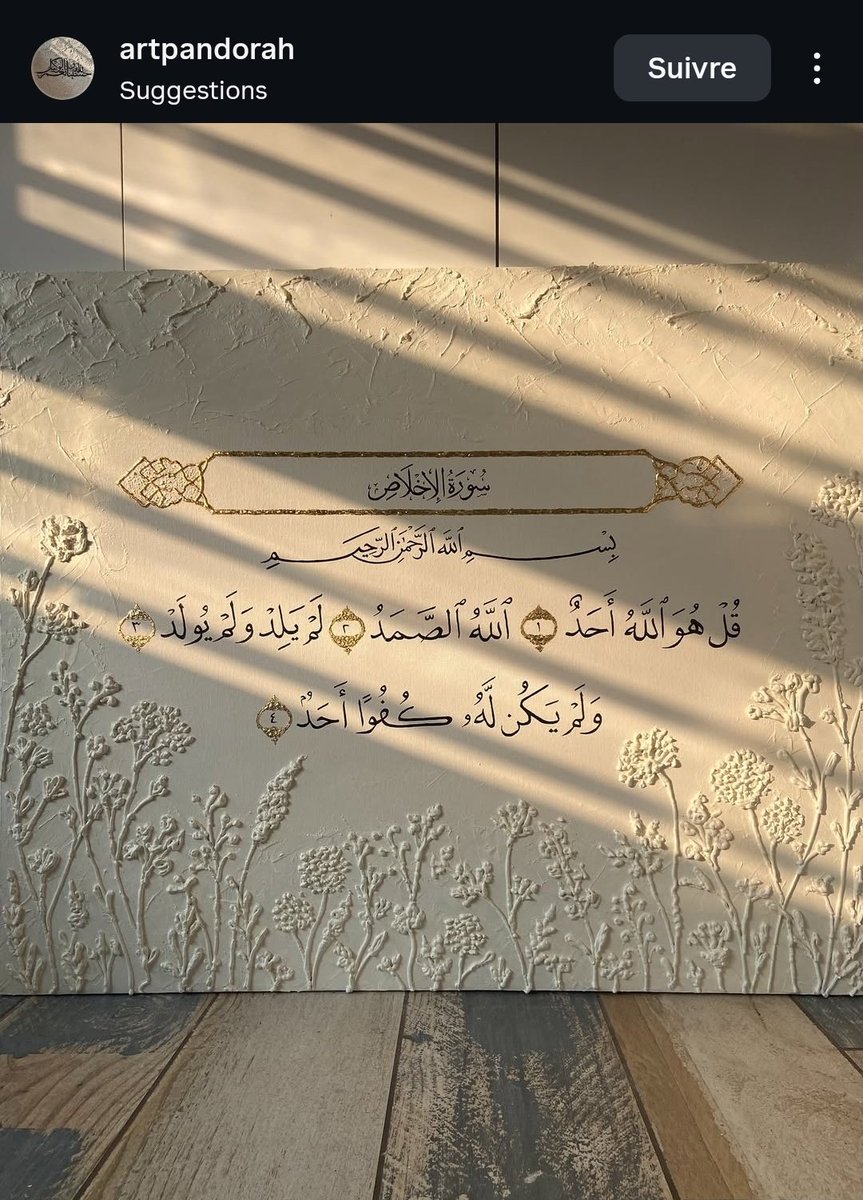 artpandorah
Suggestions
Suivre
سُورَةُ الإِخْلَاصِ
بِسْمِ ٱللَّهِ ٱلرَّحْمَٰنِ ٱلرَّحِيمِ
قُلْ هُوَ ٱللَّهُ أَحَدٌ ١ ٱللَّهُ ٱلصَّمَدُ ٢ لَمْ يَلِدْ وَلَمْ يُولَدْ ٣
وَلَمْ يَكُن لَّهُۥ كُفُوًا أَحَدٌۢ ٤